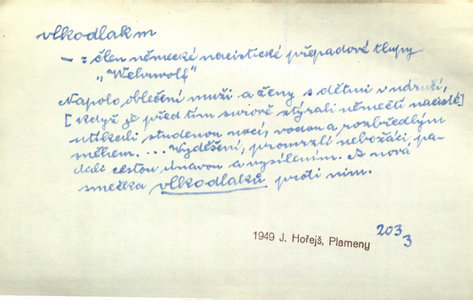 vlkodlak m
– : člen německé nacistické přepadové tlupy
„Wehrwolf"
Napolo oblečení muži a ženy s dětmi v náručí,
[když je před tím surově ztýrali němečtí nacisté]
utíkali studenou nocí, vodou a rozbředlým
sněhem. ... Vyděšení, promrzlí nebožáci, pa-
dali cestou únavou a vysílením. A nová
smečka vlkodlaků proti nim.
1949 J. Hořejš, Plameny
203
3